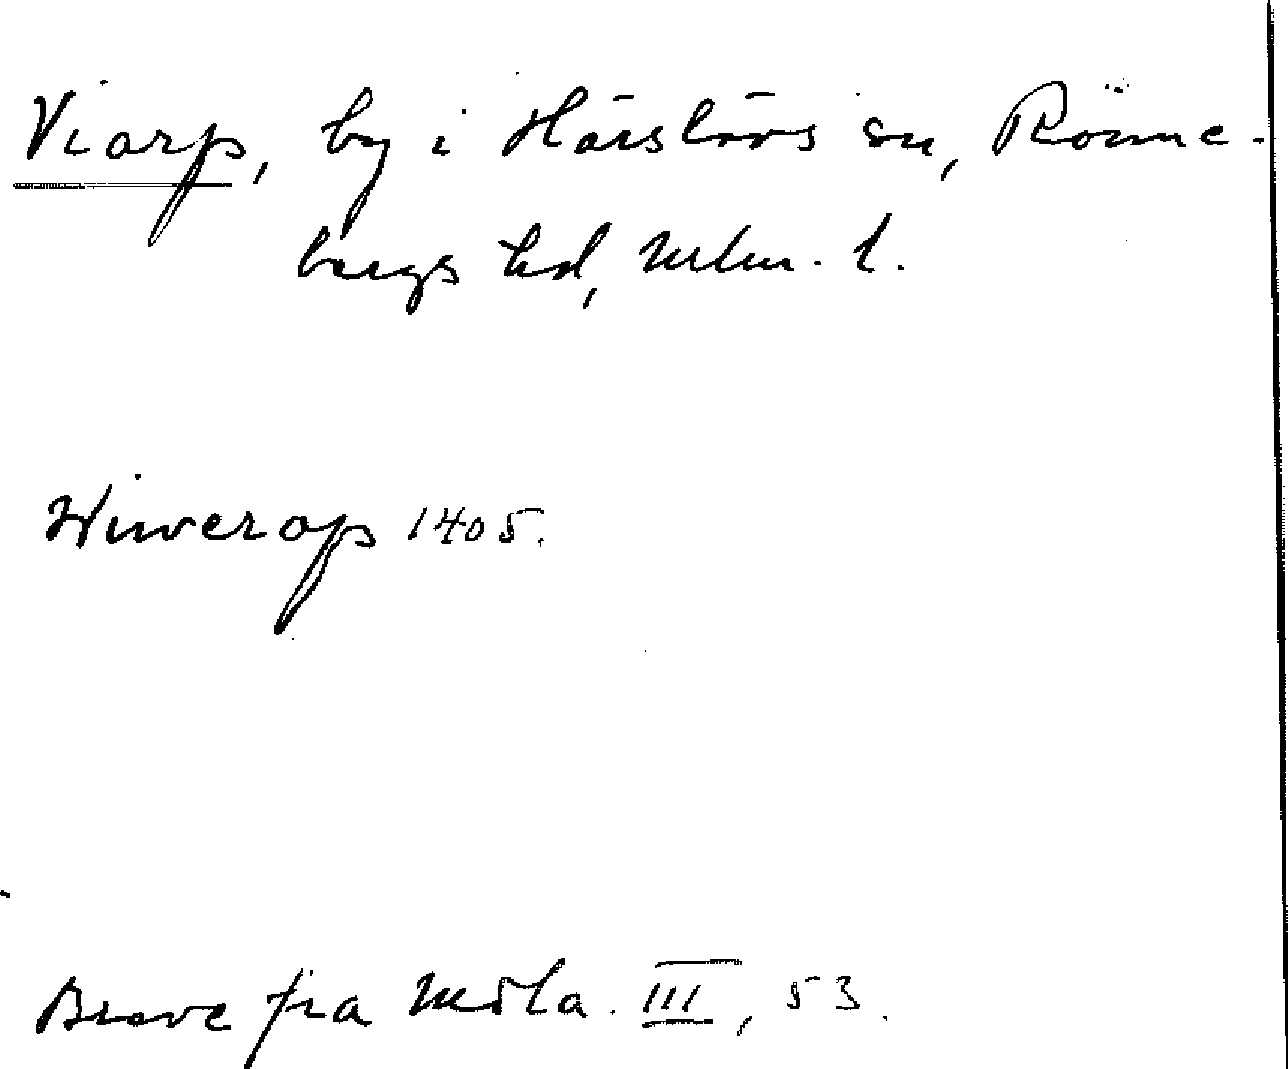 Viarp, by i Härslövs sn, Rönne-
bergs hd, Mlm. l.
Wiwerop 1405.
Breve fra Midla. III, 53.